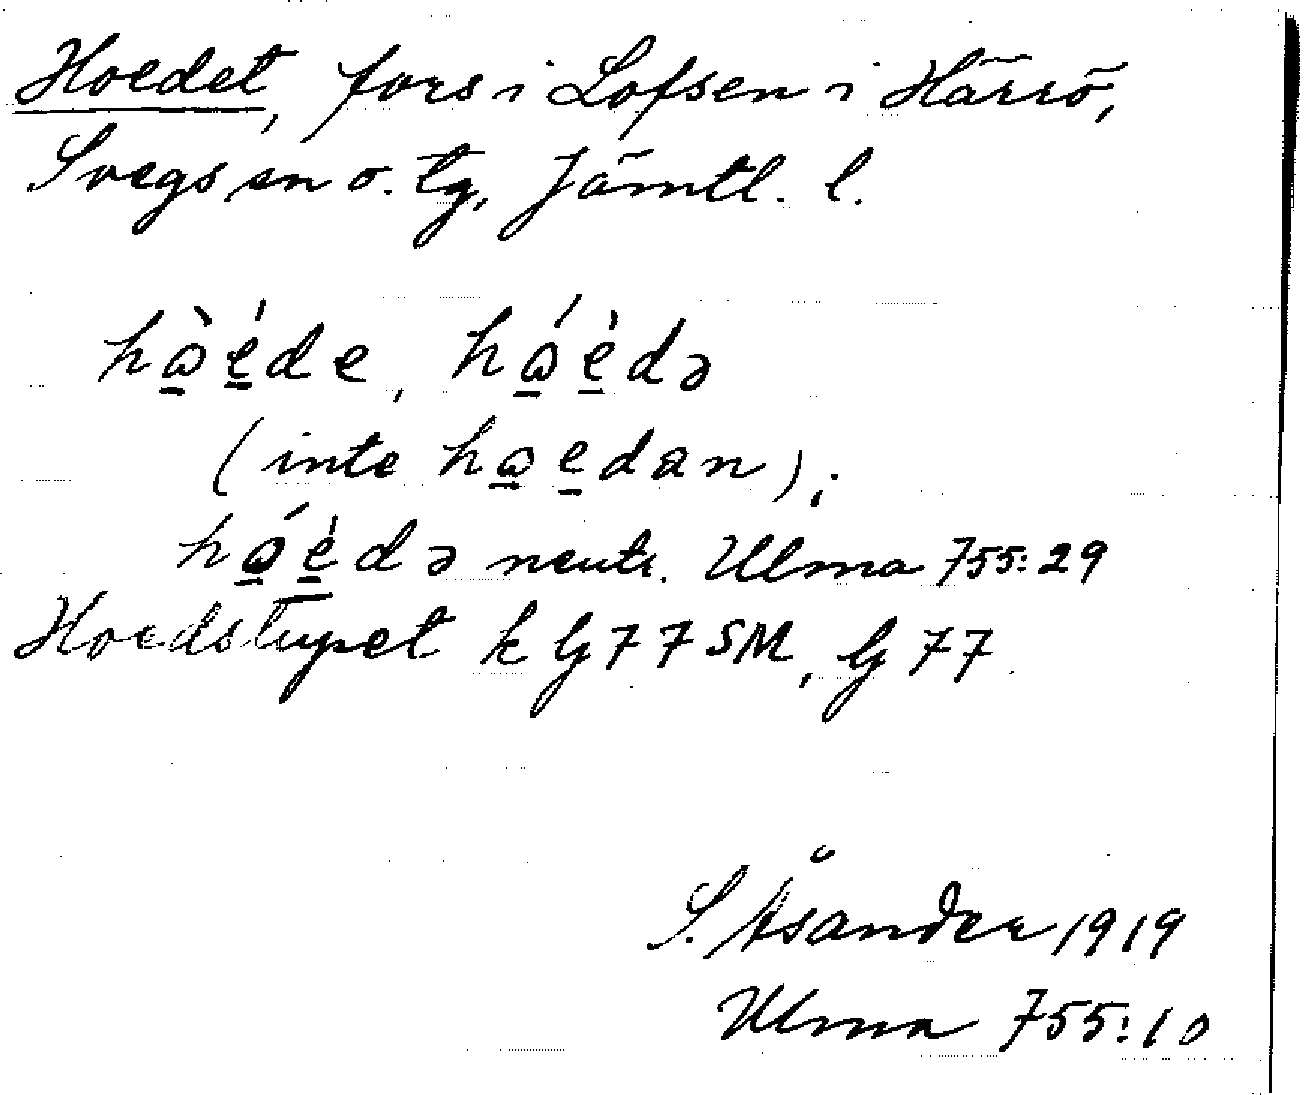 Hoedet, fors i Lofsen i Härrö,
Svegs sn o. tg, Jämtl. l.
hɷ̱̀é̱de, hɷ̱́è̱də
(inte hɷ̱e̱dan);
hɷ̱́è̱də neutr. Ulma 755:29
Hoedstupet k bl 77 SM, bl 77
S. Åsander 1919
Ulma 755:10